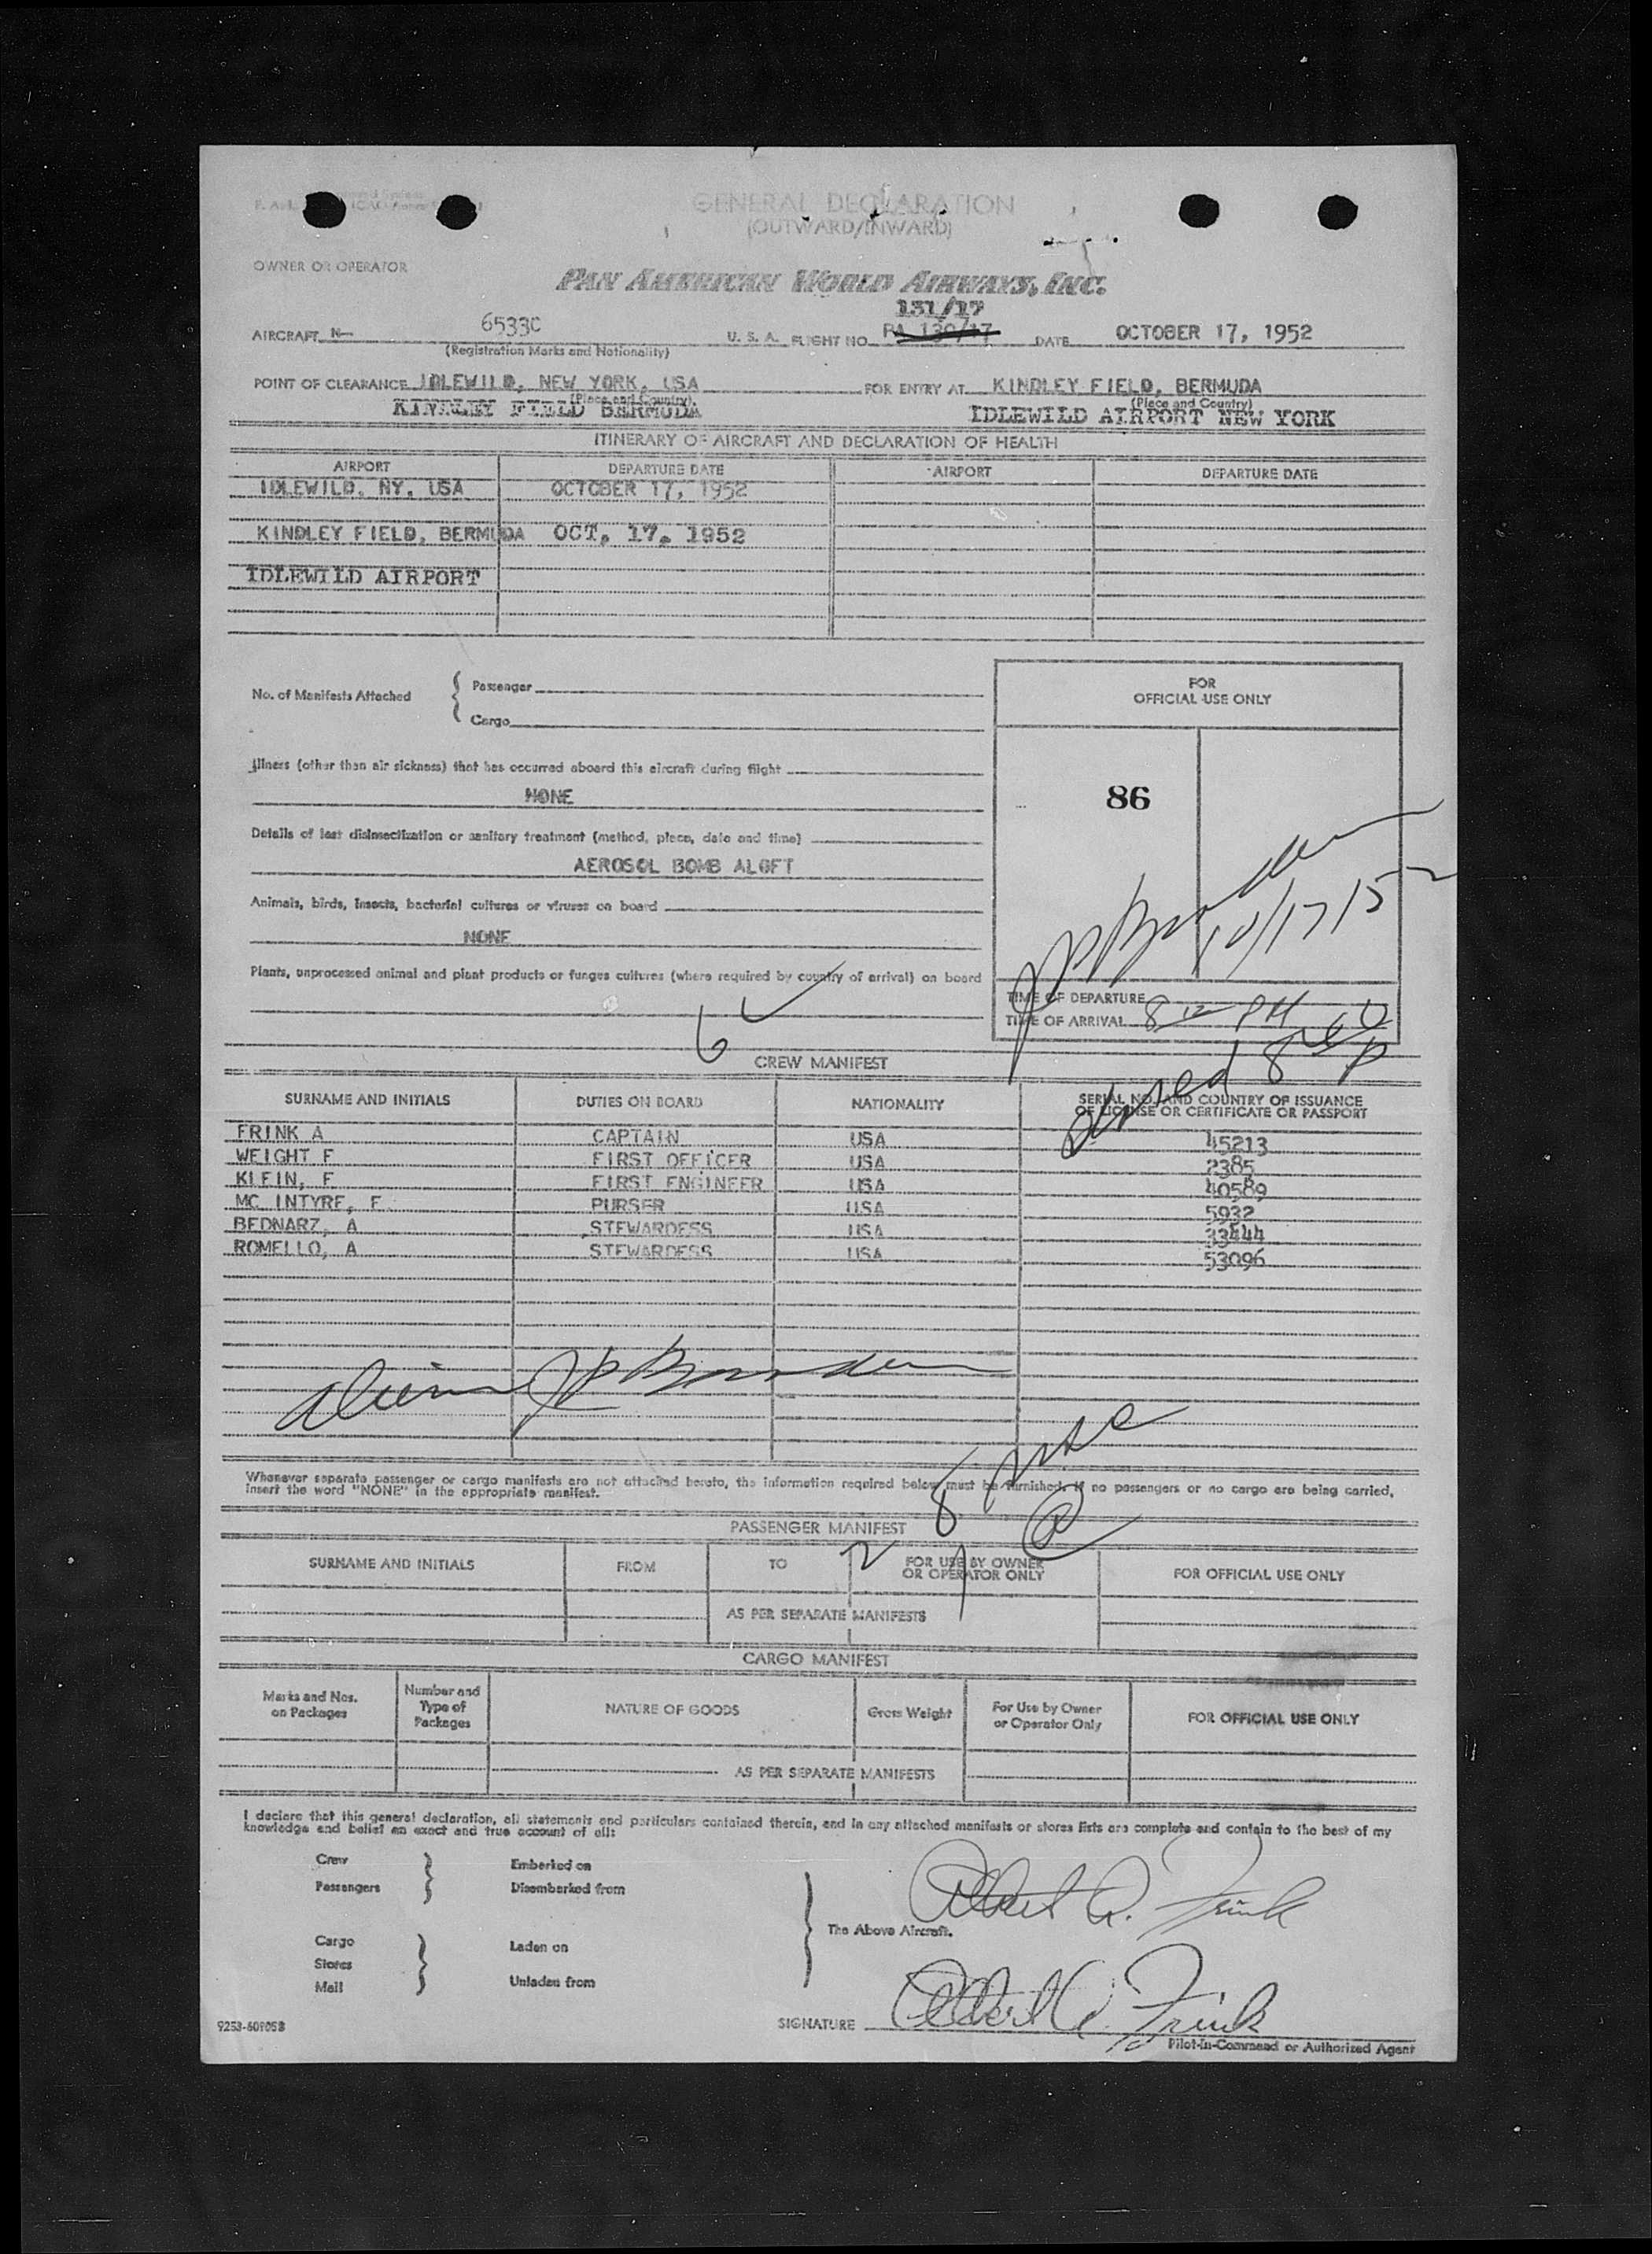 GENERAL DECLARATION
(OUTWARD/INWARD)
OWNER OR OPERATOR
PAN AMERICAN WORLD AIRWAYS, INC.
131/17
AIRCRAFT N- 6533C U. S. A. FLIGHT NO. PA 130/17 DATE OCTOBER 17, 1952
(Registration Marks and Nationality)
POINT OF CLEARANCE IDLEWILD, NEW YORK, USA FOR ENTRY AT KINDLEY FIELD, BERMUDA
(Place and Country) (Place and Country)
KINDLEY FIELD BERMUDA IDLEWILD AIRPORT NEW YORK
ITINERARY OF AIRCRAFT AND DECLARATION OF HEALTH
AIRPORT DEPARTURE DATE AIRPORT DEPARTURE DATE
IDLEWILD, NY, USA OCTOBER 17, 1952
KINDLEY FIELD, BERMUDA OCT. 17. 1952
IDLEWILD AIRPORT
No. of Manifests Attached { Passenger
Cargo
FOR
OFFICIAL USE ONLY
Illness (other than air sickness) that has occurred aboard this aircraft during flight
NONE
86
Details of last disinsectization or sanitary treatment (method, place, date and time)
AEROSOL BOMB ALOFT
Animals, birds, insects, bacterial cultures or viruses on board
NONE
10/17/52
Plants, unprocessed animal and plant products or fungus cultures (where required by country of arrival) on board
TIME OF DEPARTURE
TIME OF ARRIVAL 8 12 PM
6
CREW MANIFEST
SURNAME AND INITIALS DUTIES ON BOARD NATIONALITY SERIAL NO. AND COUNTRY OF ISSUANCE
OF LICENSE OR CERTIFICATE OR PASSPORT
FRINK A CAPTAIN USA 45213
WEIGHT F FIRST OFFICER USA 2385
KLEIN, F FIRST ENGINEER USA 40589
MC INTYRE, F PURSER USA 5932
BEDNARZ, A STEWARDESS USA 33444
ROMELLO, A STEWARDESS USA 53096
Whenever separate passenger or cargo manifests are not attached hereto, the information required below must be furnished. If no passengers or no cargo are being carried,
insert the word "NONE" in the appropriate manifest.
8
PASSENGER MANIFEST
2
SURNAME AND INITIALS FROM TO FOR USE BY OWNER
OR OPERATOR ONLY FOR OFFICIAL USE ONLY
AS PER SEPARATE MANIFESTS
CARGO MANIFEST
Marks and Nos.
on Packages Number and
Type of
Packages NATURE OF GOODS Gross Weight For Use by Owner
or Operator Only FOR OFFICIAL USE ONLY
AS PER SEPARATE MANIFESTS
I declare that this general declaration, all statements and particulars contained therein, and in any attached manifests or stores lists are complete and contain to the best of my
knowledge and belief an exact and true account of all:
Crew Embarked on
Passengers Disembarked from
Albert A. Frink
The Above Aircraft.
Cargo Laden on
Stores
Mail Unladen from
SIGNATURE Albert A. Frink
9253-609058
Pilot-in-Command or Authorized Agent